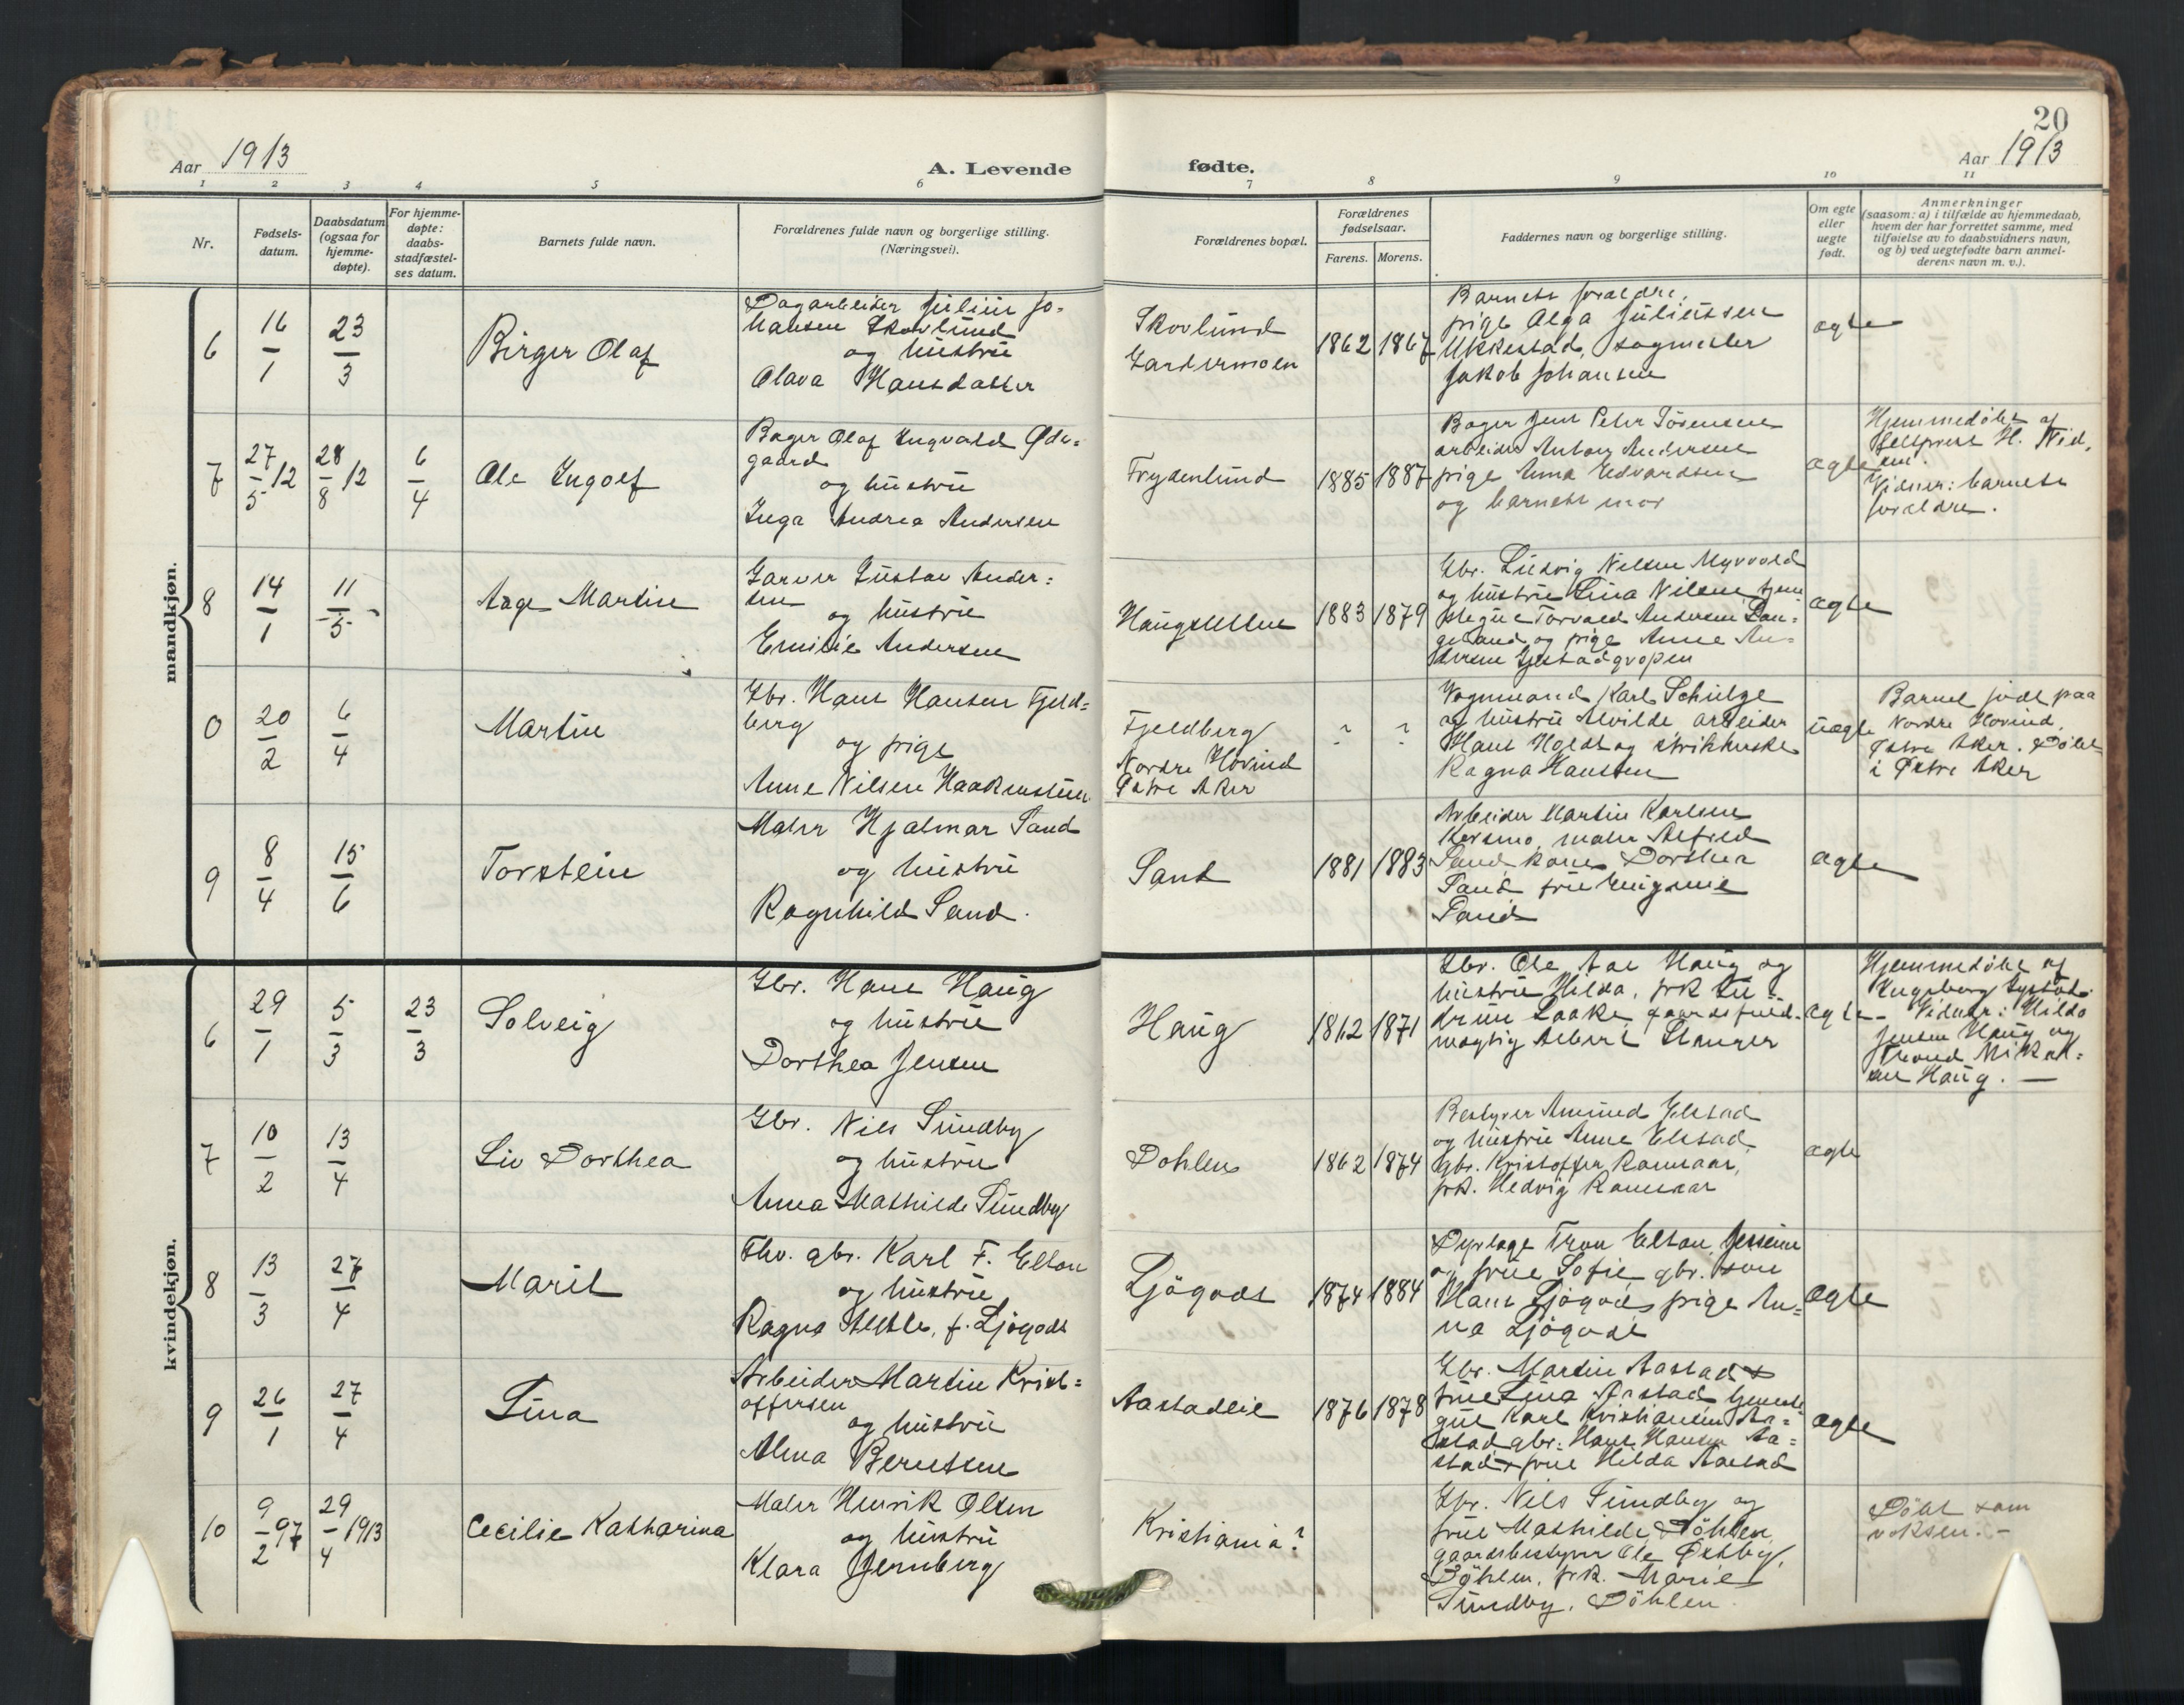 20
Aar 1913
A. Levende
fødte.
Aar 1913
1 2 3 4 5 6 7 8 9 10 11
Nr.
Fødsels-
datum.
Daabsdatum
(ogsaa for
hjemme-
døpte).
For hjemme-
døpte:
daabs-
stadfæstel-
ses datum.
Barnets fulde navn.
Forældrenes fulde navn og borgerlige stilling.
(Næringsvei).
Forældrenes bopæl.
Forældrenes
fødselsaar.
Farens. Morens.
Faddernes navn og borgerlige stilling.
Om egte
eller
uegte
født.
Anmerkninger
(saasom: a) i tilfælde av hjemmedaab,
hvem der har forrettet samme, med
tilføielse av to daabsvidners navn,
og b) ved uegtefødte barn anmel-
derens navn m. v.).
mandkjøn.
6
16/1
23/3
Birger Olaf
Dagarbeider Juliur Jo-
hansen Skovlund
og hustru
Olava Hansdatter
Skovlund
Gardermoen
1862 1867
Barnets forældre,
pige Olga Juliussen
Ukkestad, sagmester
Jakob Johansen
ægte
7
27/5 12
28/8 12
6/4
Ole Ingolf
Bager Olaf Ingvald Øde-
gaard
og hustru
Inga Andrea Andersen
Frydenlund
1885 1887
Bager Jens Peter Sørensen
arbeider Anton Andersen
pige Anna Edvardsen
og barnets mor
ægte
Hjemmedøbt af
H. Nil.
sen.
Vidner: barnets
forældre.
8
14/1
11/5
Aage Martin
Garver Gustav Ander-
sen
og hustru
Emilie Andersen
Haugsletten
1883 1879
Gbr. Ludvig Nilsen Myrvold
og hustru Lina Nilsen, tjene
stegut Torvald Andersen Lan-
geland og pige Anne An-
dersen
ægte
0
20/2
6/4
Martin
Gbr. Hans Hansen Fjeld-
berg
og pige
Anne Nilsen Haakenstuen
Fjeldberg
Nordre Hovind
Østre Aker
? ?
Vognmand Karl Schulze
og hustru Alvilde, arbeider
Hans Holdt og strikkerske
Ragna Hansen
uægte
Barnet født paa
Nordre Hovind,
Østre Aker. Døbt
i Østre Aker
9
8/4
15/6
Torstein
Maler Hjalmar Sand
og hustru
Ragnhild Sand.
Sand
1881 1883
Arbeider Martin Karlsen
Korsmo, maler Alfred
Sand, kone Dorthea
Sand, frue
Sand
ægte
kvindekjøn.
6
29/1
5/3
23/3
Solveig
Gbr. Hans Haug
og hustru
Dorthea Jensen
Haug
1862 1871
Gbr. Ole Aae Haug og
hustru Hilda, frk Gu-
drun Laake, gaardsfuld-
mægtig Albert Stanger
ægte
Hjemmedøbt af
Ingeborg
Vidner: Hilda
Jensen Haug og
Trond Mikkel-
sen Haug. —
7
10/2
13/4
Liv Dorthea
Gbr. Nils Sundby
og hustru
Anna Mathilde Sundby
Dohlen
1862 1874
Bestyrer Amund Elstad
og hustru Anne Elstad
gbr. Kristoffer Ramsaar,
frk. Hedvig Ramsaar
ægte
8
13/3
27/4
Marit
Fhv. gbr. Karl F. Elton
og hustru
Ragna f. Ljøgodt
Ljögodt
1874 1884
Dyrlæge Tron Elton,
og frue Sofie, gbr.
Hans Ljøgodt, pige An-
na Ljøgodt
ægte
9
26/1
27/4
Lina
Arbeider Martin Krist-
offersen
og hustru
Alma Berntsen
Aastadeie
1876 1878
Gbr. Martin Aastad &
frue Lina Aastad, tjeneste
gut Karl Kristiansen Aa-
stad, gbr. Hans Hansen Aa-
stad & frue Hilda Aastad
ægte
10
9/2 97
29/4 1913
Cecilie Katharina
Maler Henrik Olsen
og hustru
Klara Jernberg
Kristiania?
Gbr. Nils Sundby og
frue Mathilde Döhlen,
gaardsbestyrer Ole Østby,
Döhlen, frk. Marie
Sundby, Döhlen.
Döbt som
voksen. –